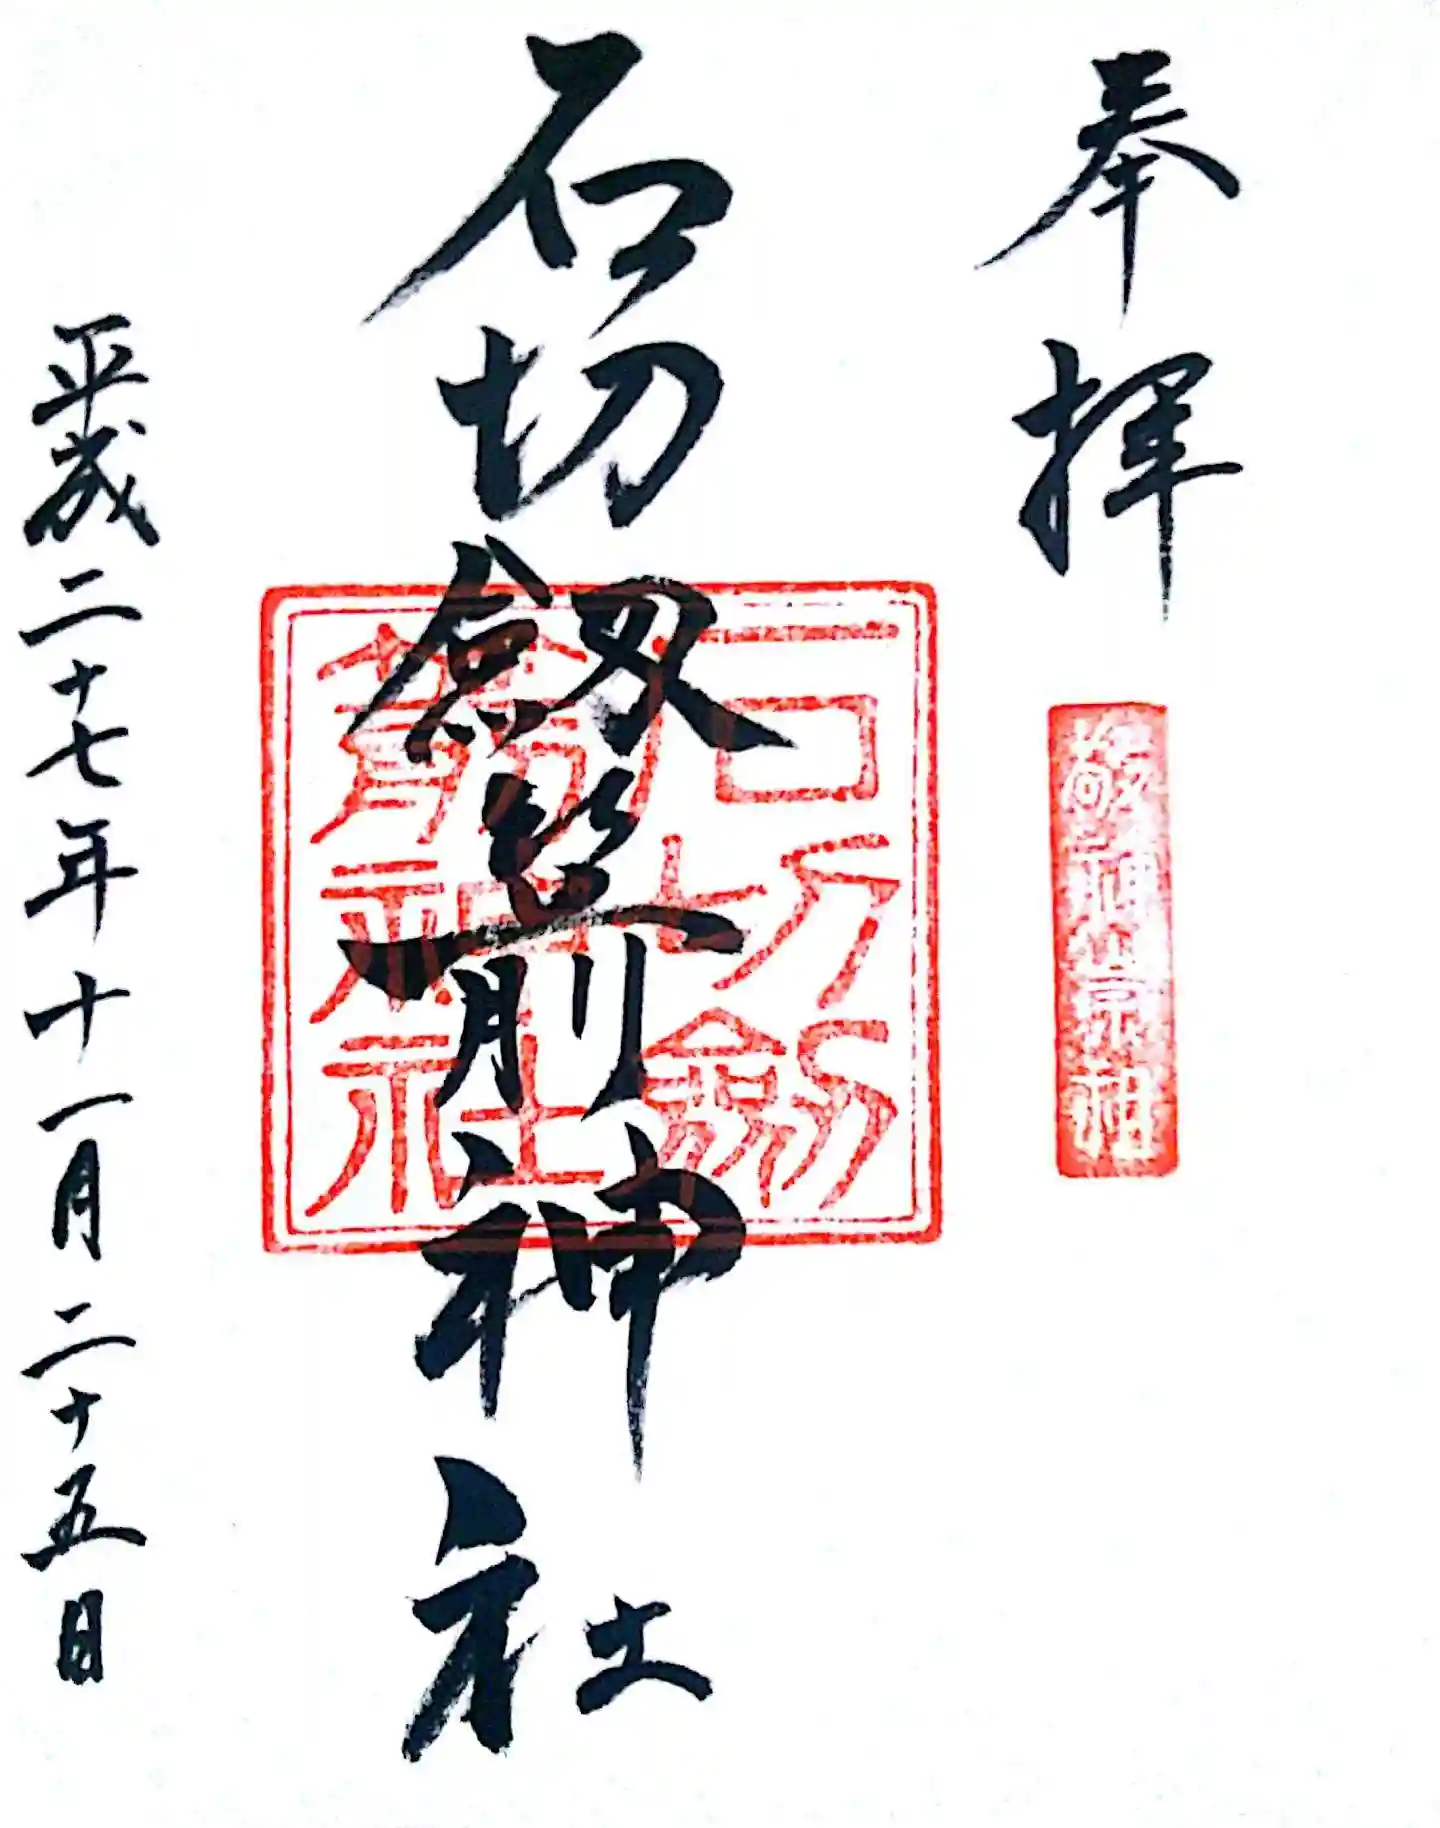 奉拝
敬神崇祖
石切劔箭神社
石切劔
箭神社
平成二十七年十一月二十五日